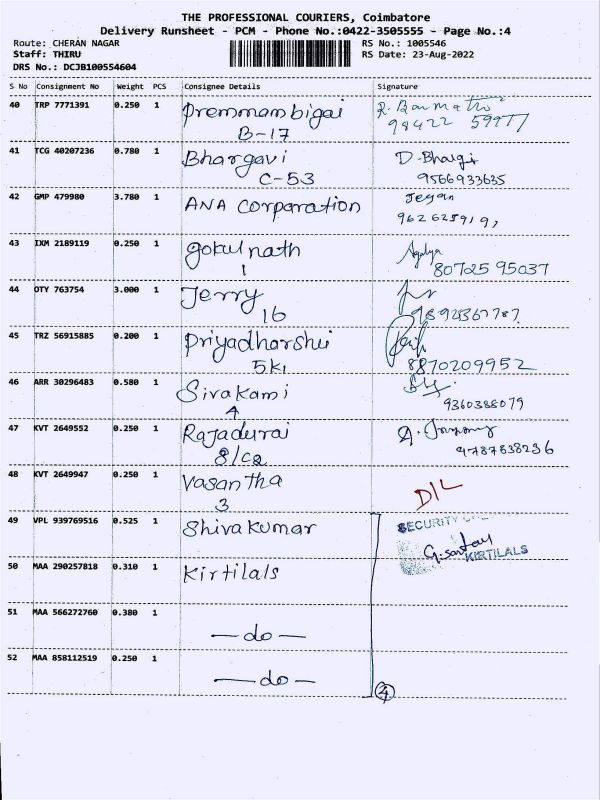 THE PROFESSIONAL COURIERS, Coimbatore
Delivery Runsheet - PCM - Phone No.:0422-3505555 - Page No.:4
Route: CHERAN NAGAR RS No.: 1005546
Staff: THIRU RS Date: 23-Aug-2022
DRS No.: DCJB100554604
S No Consignment No Weight PCS Consignee Details Signature
40 TRP 7771391 0.250 1 Premmambigai
B-17 98422 59977
41 TCG 40207236 0.780 1 Bhargavi D. Bhargi
C-53 9566933635
42 GMP 479980 3.780 1 ANA Corparation Jeyan
43 IXM 2189119 0.250 1 gokulnath Agalya
1 80725 95037
44 OTY 763754 3.000 1 Jerry
16
45 TRZ 56915885 0.200 1 Priyadharshi
5k1 8870209952
46 ARR 30296483 0.580 1 Sivakami
4 9360388079
47 KVT 2649552 0.250 1 Rajadurai
8/C2 9787838236
48 KVT 2649947 0.250 1 Vasantha D/L
3
49 VPL 939769516 0.525 1 Shivakumar SECURITY
KIRTILALS
50 MAA 290257818 0.310 1 Kirtilals
51 MAA 566272760 0.380 1
— do —
52 MAA 858112519 0.250 1
— do — 4